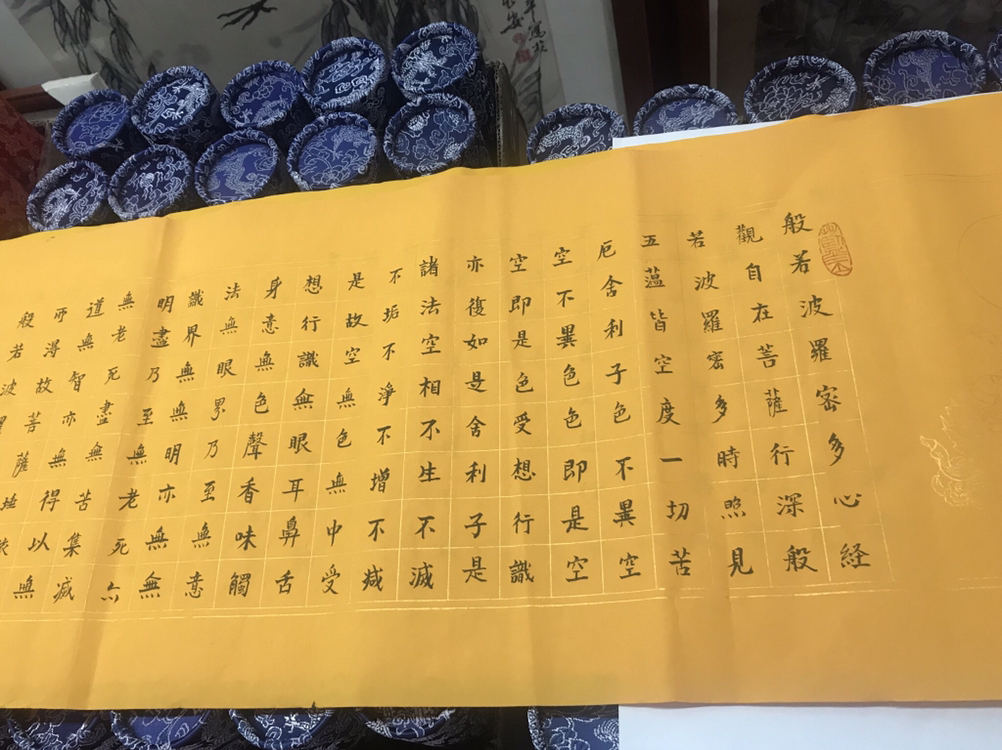 般若波羅密多心経
觀自在菩薩行深般
若波羅密多時照見
五蕰皆空度一切苦
厄舍利子色不異空
空不異色色即是空
空即是色受想行識
亦復如是舍利子是
諸法空相不生不滅
不垢不淨不增不减
是故空無色無中受
想行識無眼耳鼻舌
身意無色聲香味觸
法無眼累乃至無意
識界無無明亦無無
明盡乃至無老死亦
無老死盡無苦集减
道無智亦無得以無
所得故菩薩埵
般若波